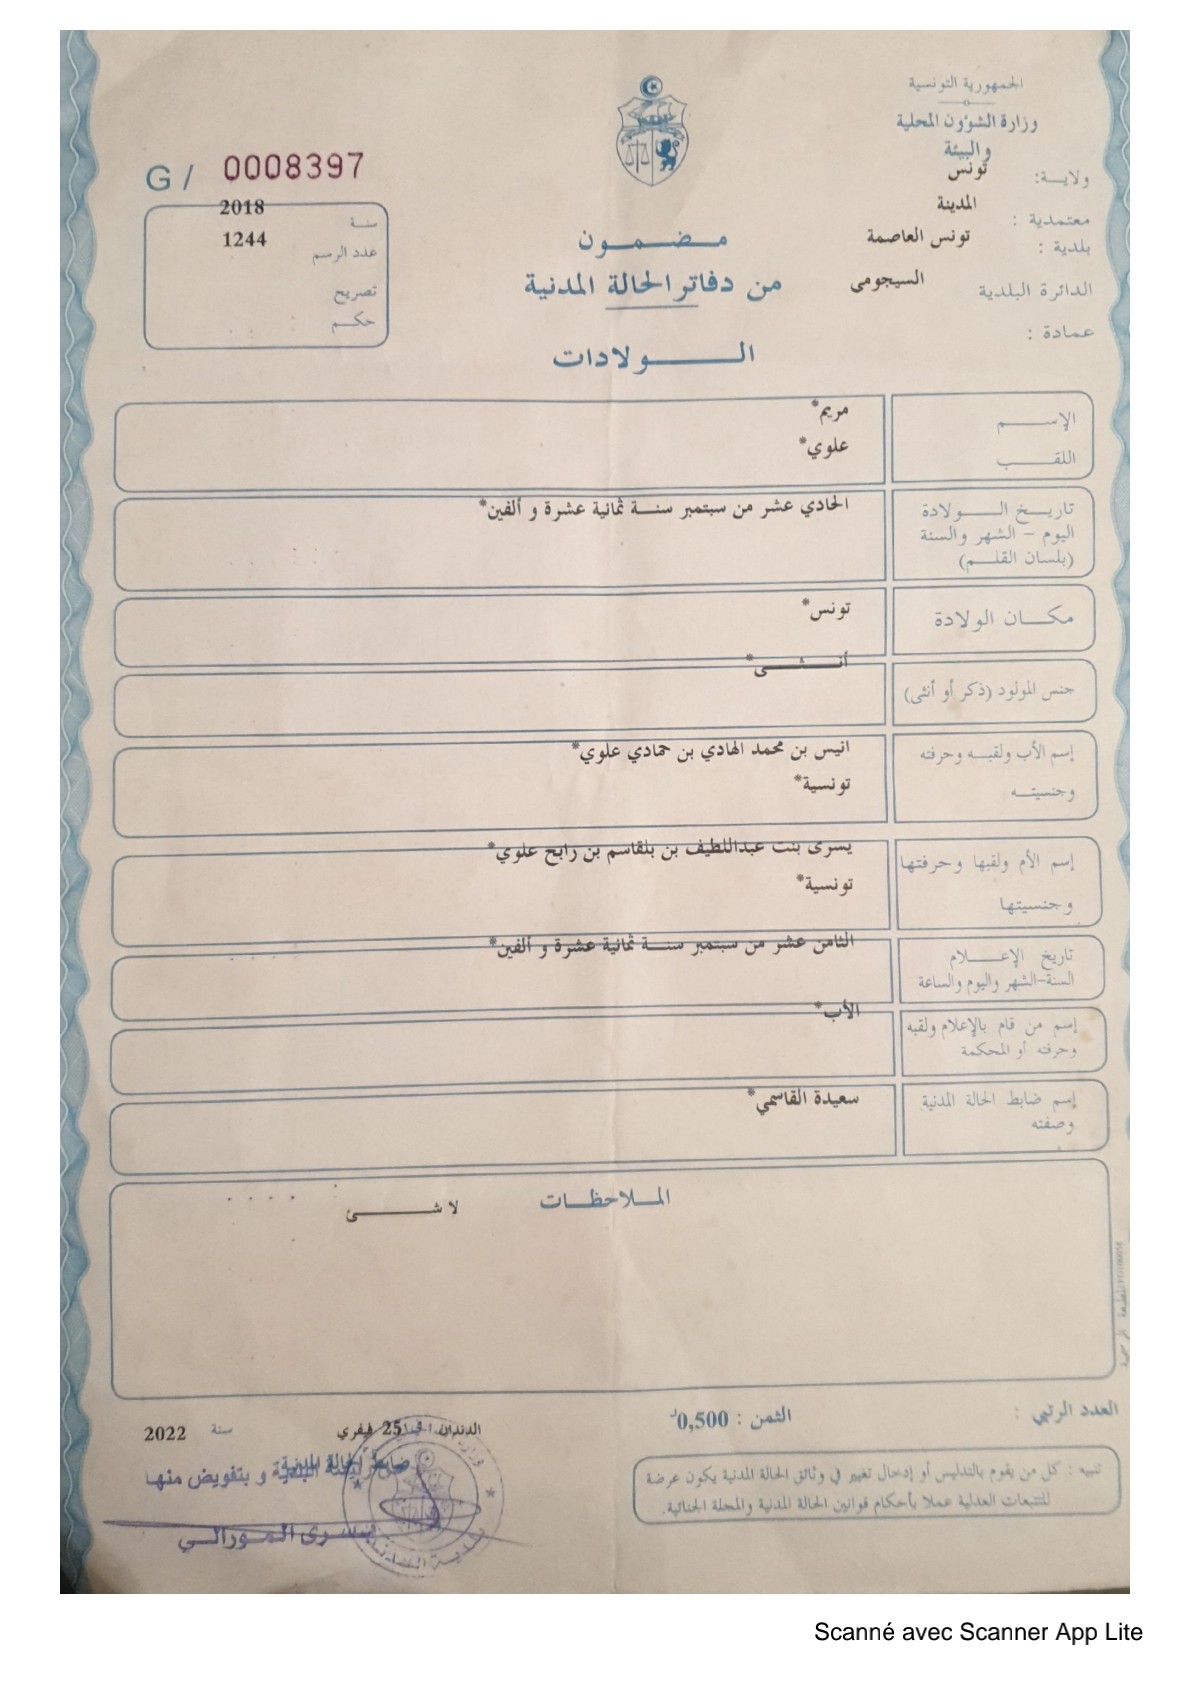 الجمهورية التونسية
وزارة الشؤون المحلية
والبيئة
ولاية: تونس
معتمدية : المدينة
بلدية : تونس العاصمة
الدائرة البلدية السيجومي
عمادة :
G / 0008397
سنة 2018
عدد الرسم 1244
تصريح
حكم
مضمون
من دفاتر الحالة المدنية
الولادات
الإسم مريم*
اللقب علوي*
تاريخ الولادة الحادي عشر من سبتمبر سنة ثمانية عشرة و ألفين*
اليوم - الشهر والسنة
(بلسان القلم)
مكان الولادة تونس*
جنس المولود (ذكر أو أنثى) أنثى*
إسم الأب ولقبه وحرفته انيس بن محمد الهادي بن حمادي علوي*
وجنسيته تونسية*
إسم الأم ولقبها وحرفتها يسرى بنت عبداللطيف بن بلقاسم بن رابح علوي*
وجنسيتها تونسية*
تاريخ الإعلام الثامن عشر من سبتمبر سنة ثمانية عشرة و ألفين*
السنة-الشهر واليوم والساعة
إسم من قام بالإعلام ولقبه الأب*
وحرفته أو المحكمة
إسم ضابط الحالة المدنية سعيدة القاسمي*
وصفته
الملاحظات
لا شئ
العدد الرتبي :
الثمن : 0,500د
الدندان في 25 فيفري سنة 2022
ضابط الحالة المدنية
البلدية و بتفويض منها
يسرى المورالي
تنبيه : كل من يقوم بالتدليس أو إدخال تغيير في وثائق الحالة المدنية يكون عرضة
للتتبعات العدلية عملا بأحكام قوانين الحالة المدنية والمجلة الجنائية.
Scanné avec Scanner App Lite